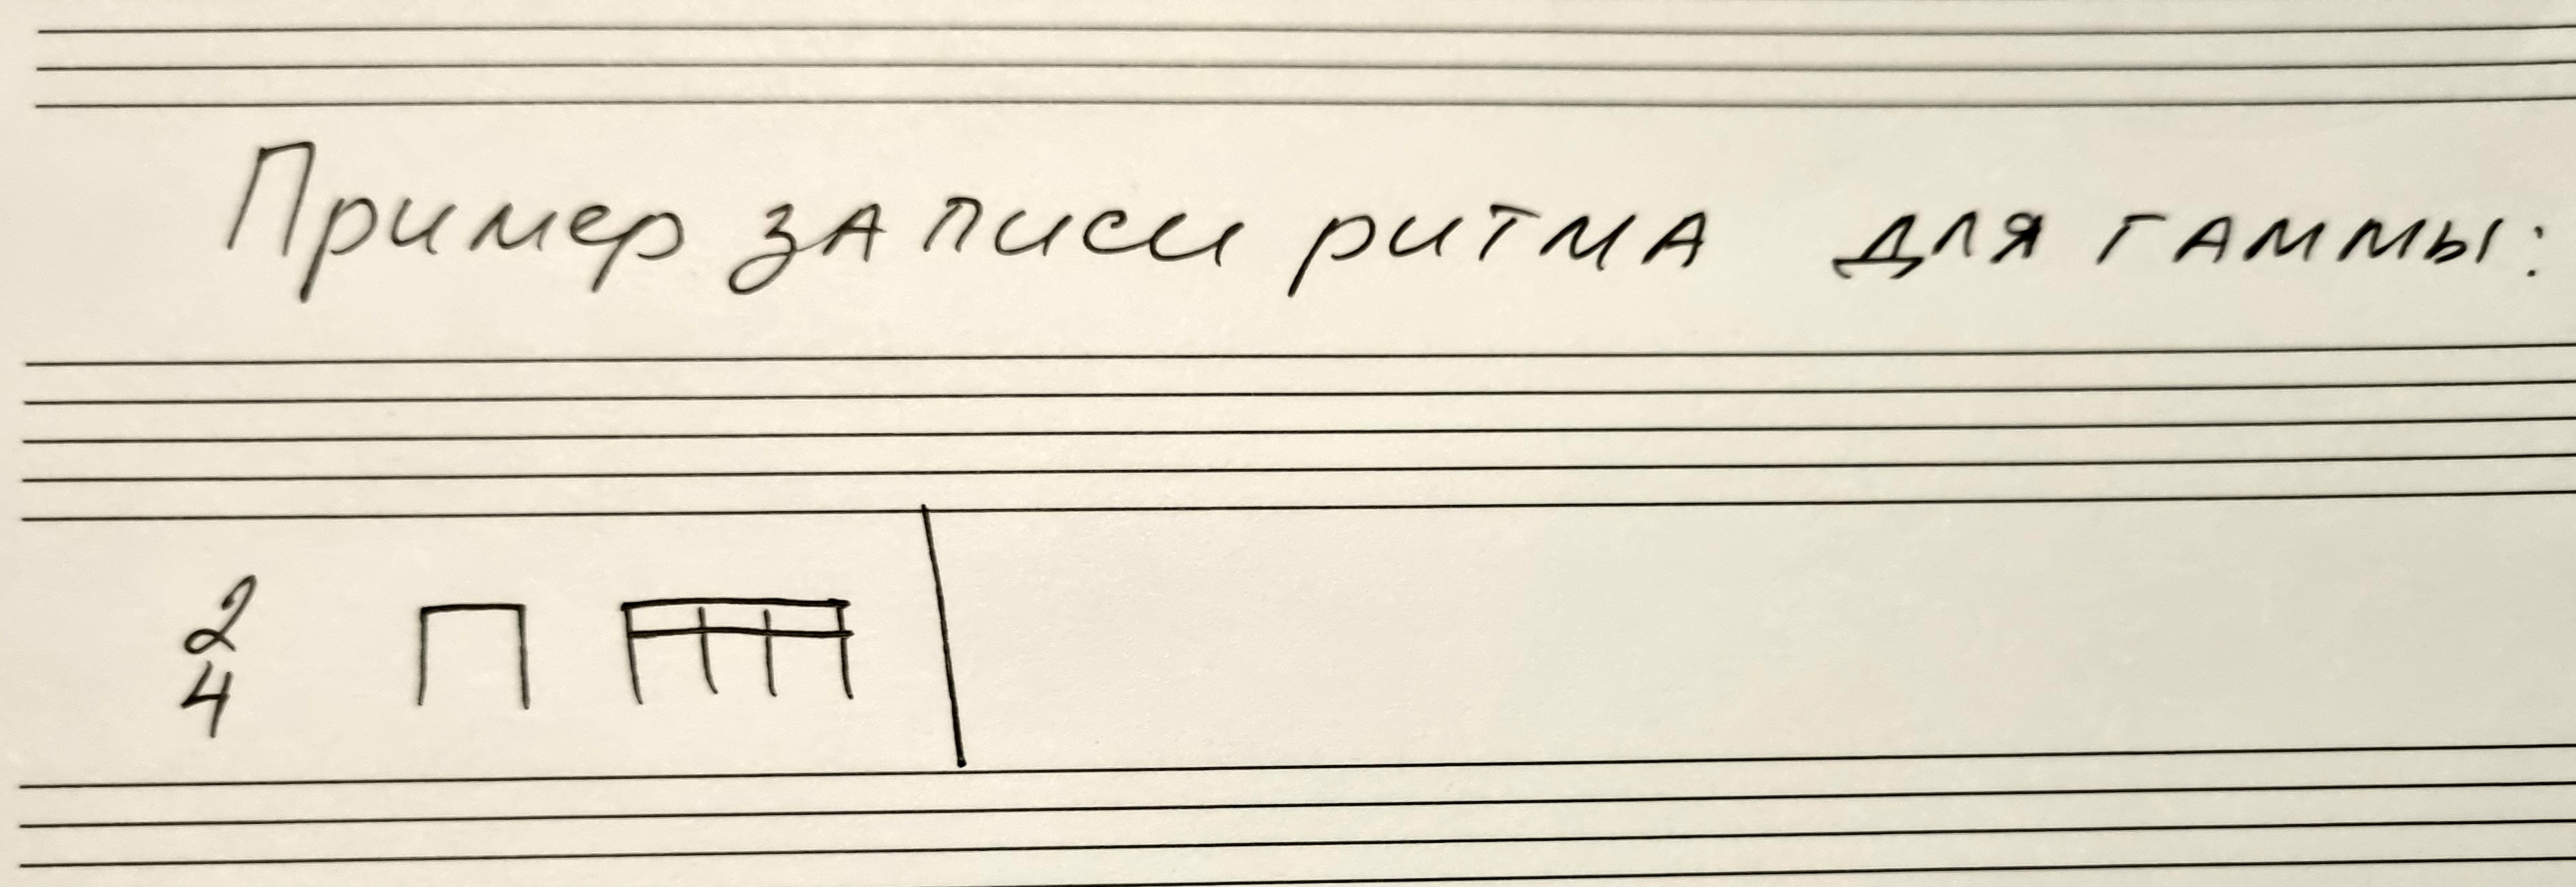 Пример записи ритма для гаммы:
2
4